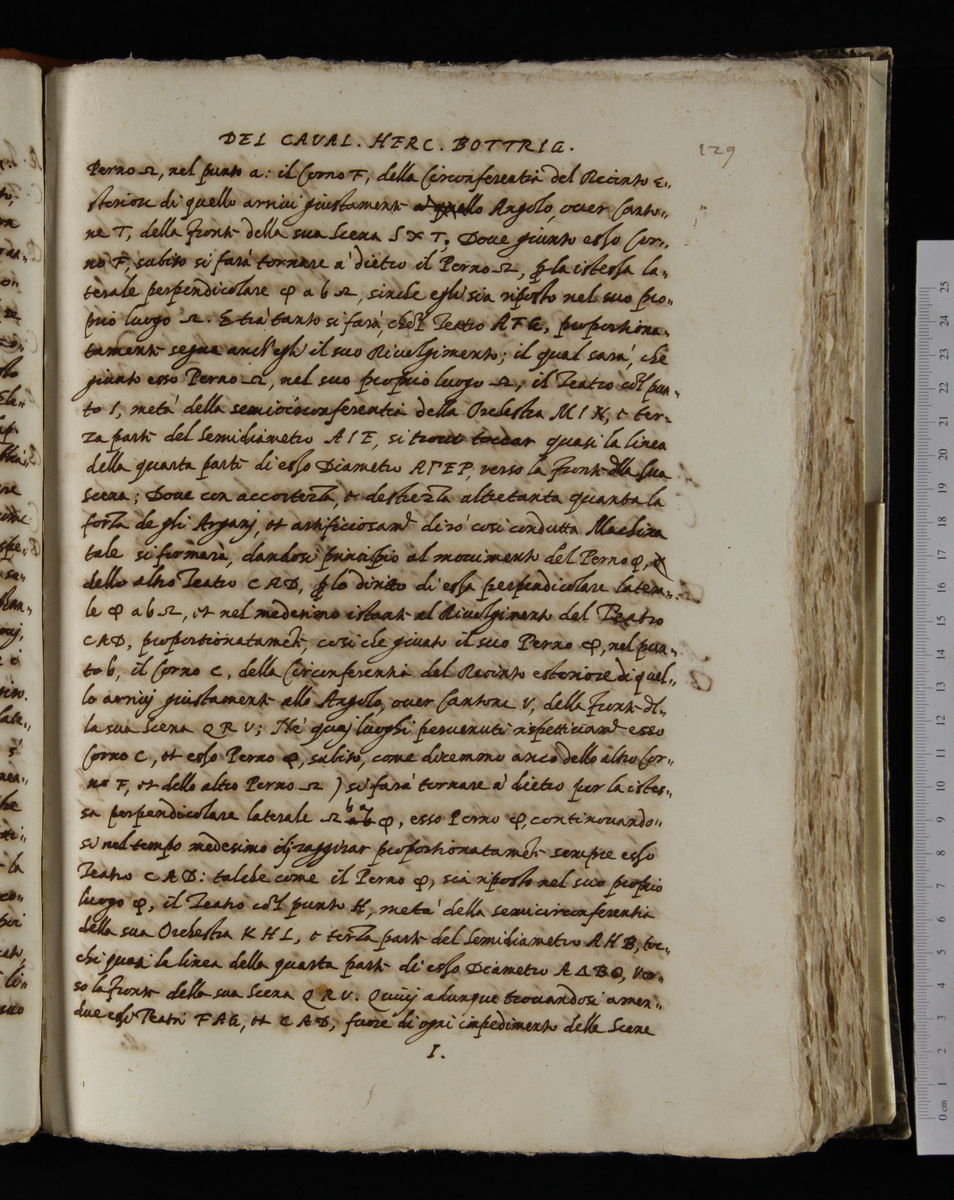 DEL CAVAL. HERC. BOTTRIG.
129
Perno Ω, nel punto a: il Corno F, della Circonferentia del Recinto e„
steriore di quello arrivi giustamente allo Angolo, over Canto„
ne T, della fronte della sua Scena S X T; Dove giunto esso Cor„
no F, subito si farà tornare a' dietro il Perno Ω, p la istessa la„
terale perpendicolare φ a b Ω, sinche egli sia riposto nel suo pro„
prio luogo Ω. E trà tanto si farà, che'l Teatro AFG, proportiona„
tamente segua anch'egli il suo Rivolgimento; il qual sarà, che
giunto esso Perno Ω, nel suo proprio luogo Ω, il Teatro co'l pun„
to I, metà della semicirconferentia della Orchestra M I N, e ter„
za parte del Semidiametro A I E, si quasi la linea
della quarta parte di esso Diametro A Γ E P, verso la fronte dlla sua
Scena; Dove con accortezza, et destrezza altretanta quanta la
forza de gli Arganj, et artificiosamte. dirò così condutta Machina
tale si fermarà, dandosi principio al movimento del Perno φ,
dello altro Teatro CAD, p lo diritto di essa perpendicolare latera„
le φ a b Ω, et nel medesimo istante al Rivolgimento del Teatro
CAD, proportionatamente, così che giunto il suo Perno φ, nel pun„
to b, il Corno C, della Circonferentia del Recinto esteriore di quel„
lo arrivj giustamente allo Angolo, over Cantone V, della fronte dl„
la sua Scena Q R V; Ne' quaj luoghi pervenuti rispettivamte. esso
Corno C, et esso Perno φ, subito, come dicemmo anco dello altro Cor„
no F, et dello altro Perno Ω ) si farà tornare a' dietro per la istes„
sa perpendicolare laterale Ω b a φ, esso Perno φ, continovando„
si nel tempo medesimo il raggirar proportionatamente sempre esso
Teatro CAD: talche come il Perno φ, sia riposto nel suo proprio
luogo φ, il Teatro co'l punto H, metà della semicirconferentia
della sua Orchestra K H L, e terza parte del Semidiametro A H B, toc„
chi quasi la linea della quarta parte di esso Diametro A Δ B O, ver„
so la fronte della sua Scena Q R V. Quivj adunque trovandosi amen„
due essi Teatri FAG, et CAD, fuore di ogni impedimento delle Scene
I.